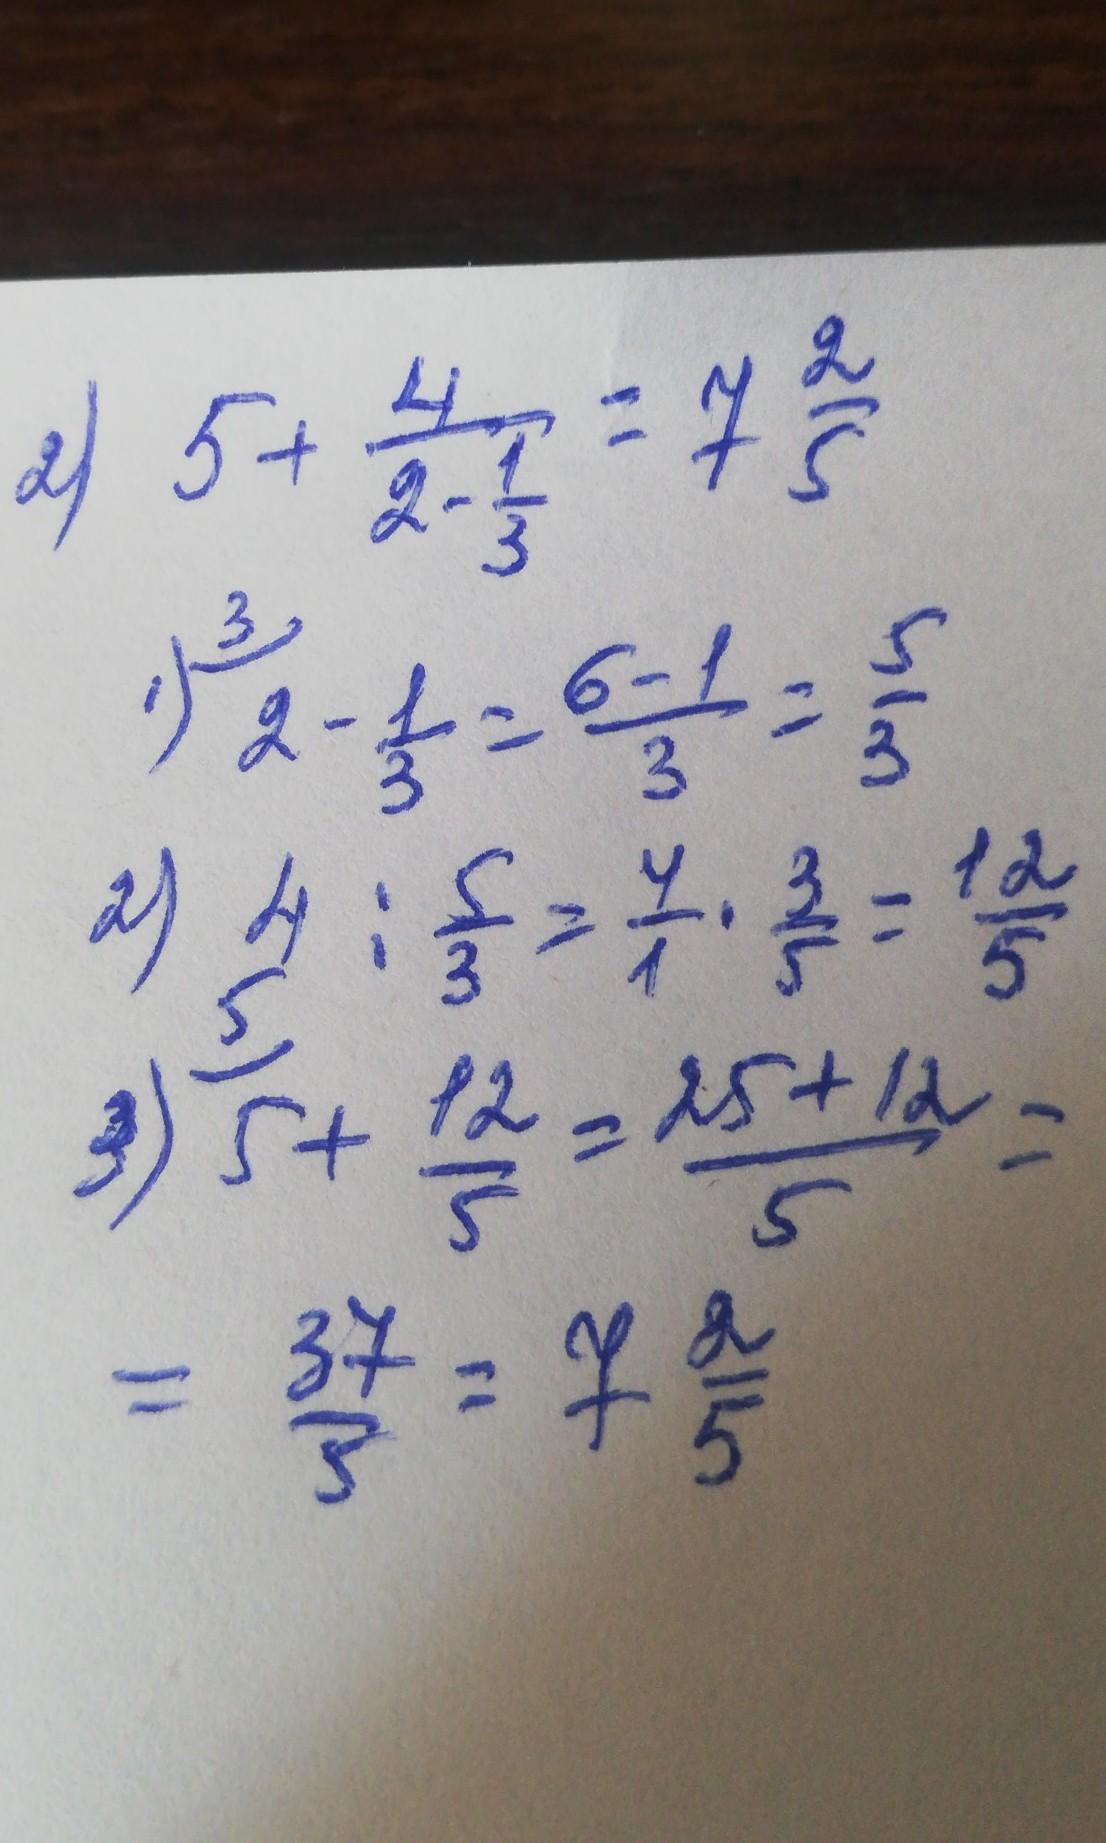 2) 5 + 4/(2 - 1/3) = 7 2/5
1) 3) 2 - 1/3 = (6 - 1)/3 = 5/3
2) 4 : 5/3 = 4/1 · 3/5 = 12/5
3) 5) 5 + 12/5 = (25 + 12)/5 =
= 37/5 = 7 2/5